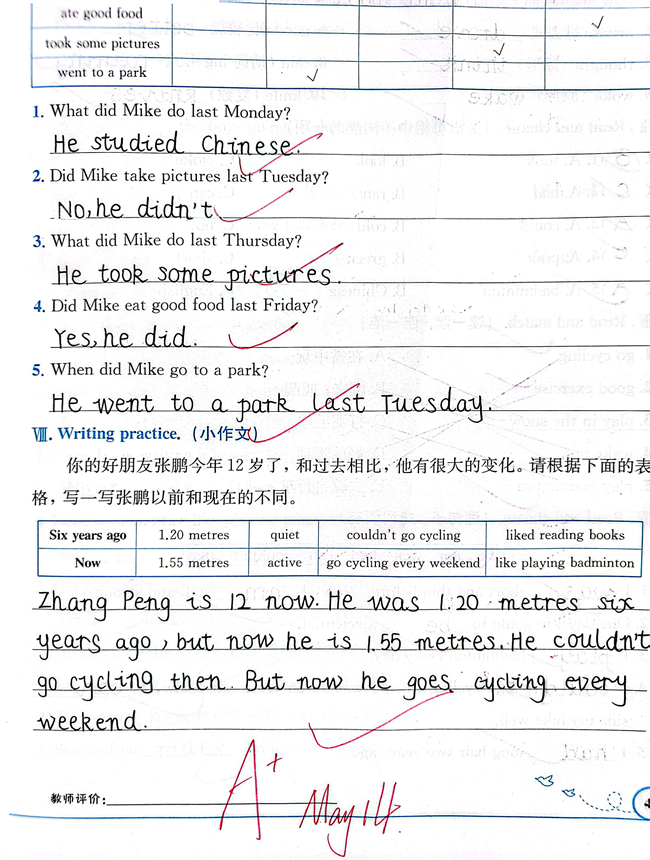 ate good food
took some pictures
went to a park
1. What did Mike do last Monday?
He studied Chinese.
2. Did Mike take pictures last Tuesday?
No, he didn't
3. What did Mike do last Thursday?
He took some pictures.
4. Did Mike eat good food last Friday?
Yes, he did.
5. When did Mike go to a park?
He went to a park last Tuesday.
Ⅶ. Writing practice. (小作文)
你的好朋友张鹏今年12岁了，和过去相比，他有很大的变化。请根据下面的表
格，写一写张鹏以前和现在的不同。
Six years ago 1.20 metres quiet couldn't go cycling liked reading books
Now 1.55 metres active go cycling every weekend like playing badminton
Zhang Peng is 12 now. He was 1.20 metres six
years ago, but now he is 1.55 metres. He couldn't
go cycling then. But now he goes cycling every
weekend.
A+
May 14.
教师评价:
4